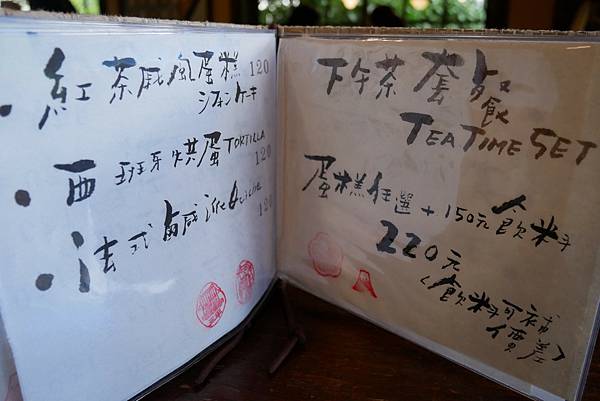 紅茶戚風蛋糕 120
シフォンケーキ
西班牙烘蛋 TORTILLA 120
法式鹹派 QUICHE 120
下午茶套餐
TEA TIME SET
蛋糕任選+150元飲料
220元
(飲料可補價差)